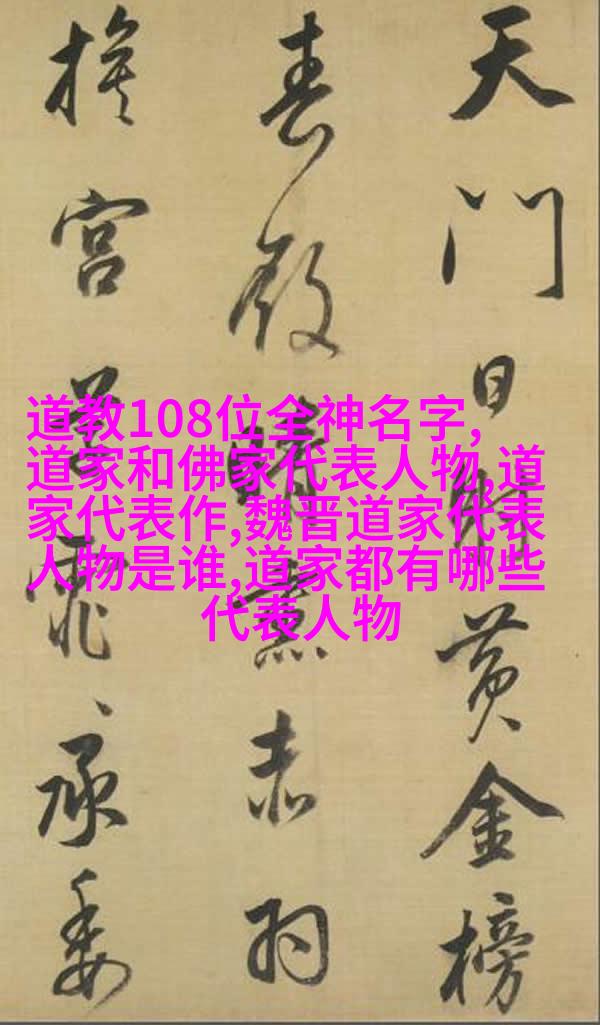 天門日射黃金榜
春殿晴熏赤羽
旗宮草霏々承委
道教108位全神名字,
道家和佛家代表人物,道
家代表作,魏晋道家代表
人物是谁,道家都有哪些
代表人物